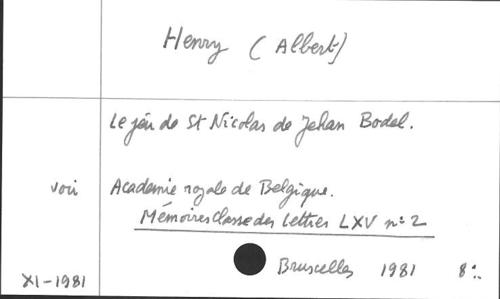 Henry (Albert)
Le jeu de St Nicolas de Jehan Bodel.
voir Academie royale de Belgique.
Mémoires classe des Lettres LXV n° 2
Bruxelles 1981 8°.
XI-1981